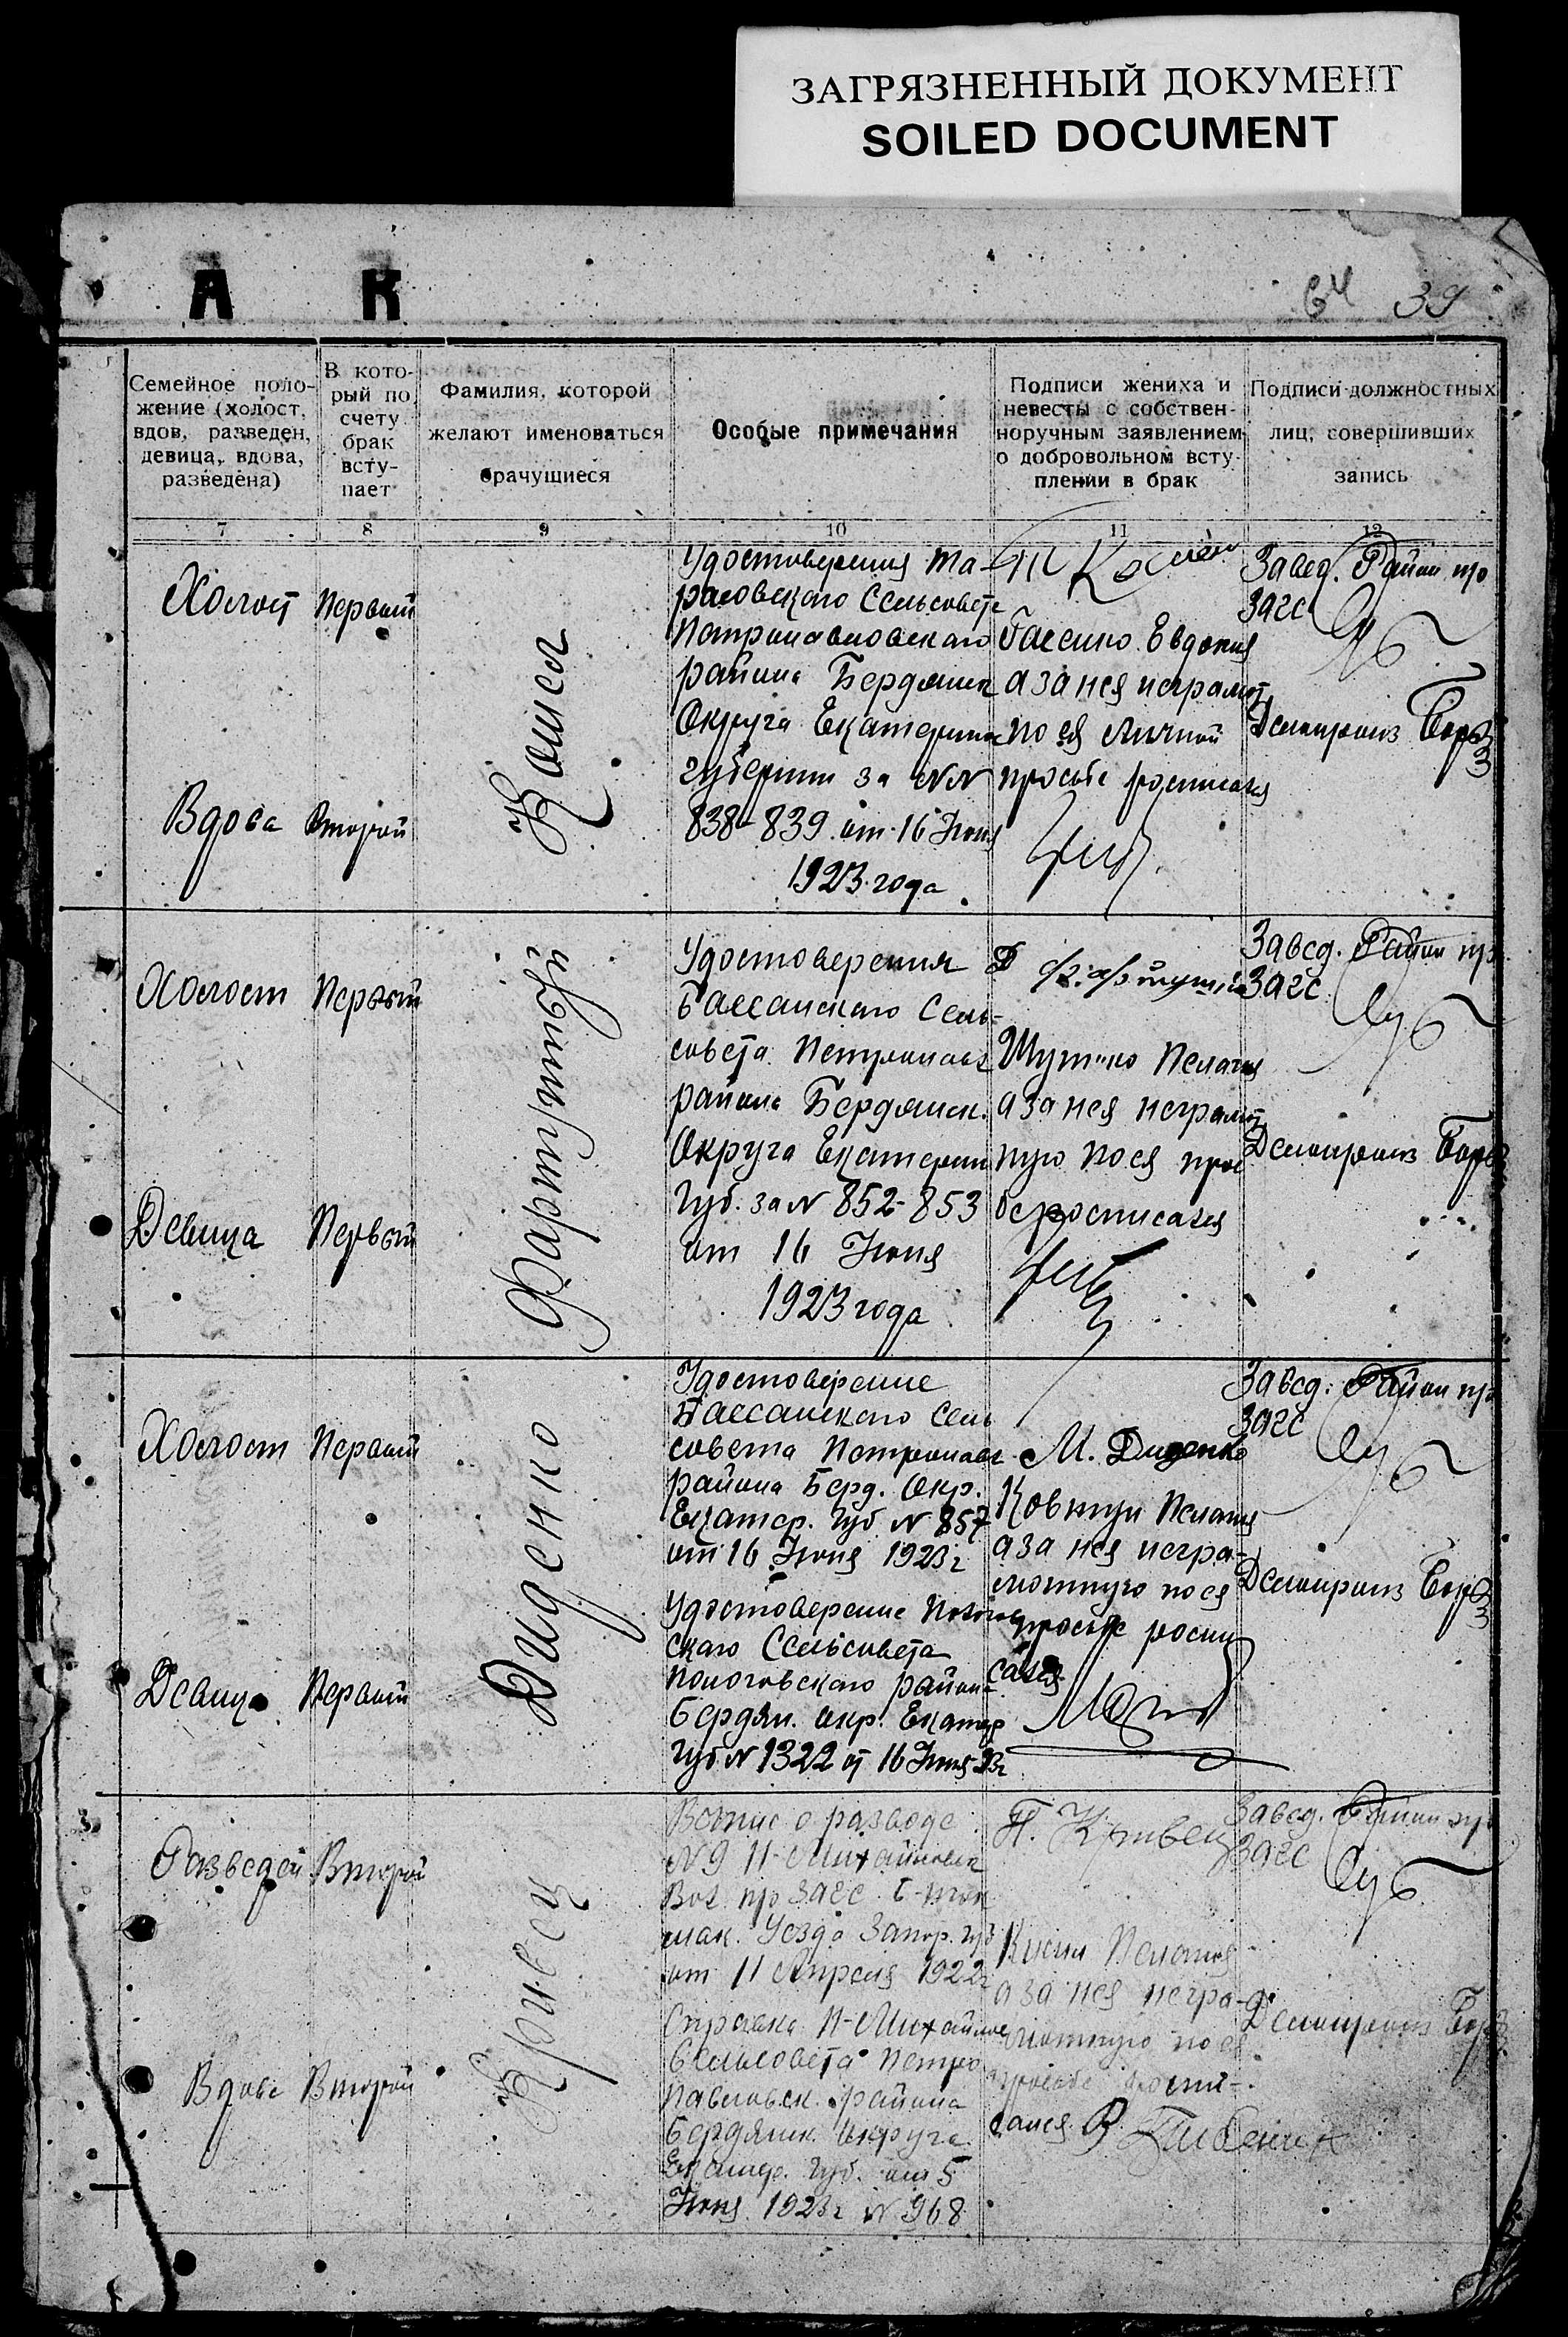 ЗАГРЯЗНЕННЫЙ ДОКУМЕНТ
SOILED DOCUMENT
А К
64 39
Семейное поло-
жение (холост,
вдов, разведен,
девица, вдова,
разведена)
В кото-
рый по
счету
брак
всту-
пает
Фамилия, которой
желают именоваться
брачущиеся
Особые примечания
Подписи жениха и
невесты с собствен-
норучным заявлением
о добровольном всту-
плении в брак
Подписи должностных
лиц, совершивших
запись
7 8 9 10 11 12
Холост
Первый
Вдова
Второй
Удостоверения Та-
расовского Ссельсовета
Петропавловского
района Бердянск
Округа Екатерин
губернии за NN
838-839 от 16 Июня
1923 года
Евдокия
а за нея неграмот
по ея личной
просьбе росписался
Завед. Район. про
Загс
Делопроиз
Холост
Первый
Девица
Первый
Удостоверения
Бассанского Сель-
совета Петропавл
района Бердянск.
Округа Екатерин
Губ. за N 852-853
от 16 Июня
1923 года
Пелагия
а за нея неграмот
ную по ея прос
бе росписался
Завед. Район про
Загс
Делопроиз
Холост
Первый
Девица
Первый
Диденко
Удостоверение
Бассанского Сель
совета Петропавл
района Берд. Окр.
Екатер. Губ N 857
от 16 Июня 1923 г
Удостоверение Пологов
скаго Ссельсовета
Пологовскаго района
Бердян. окр. Екатер
Губ N 1322 от 16 Июня 23г
М. Диденко
Ковтун Пелагия
а за нея негра-
мотную по ея
просьбе роспи
сался
Завед. Район про
Загс
Делопроиз
Разведен
Второй
Вдова
Второй
Кривец
Вопис о разводе
N 9 Н-Михайловск
Вол. про Загс. Б-Ток
мак. Уезда Запор. губ
от 11 Апреля 1922г
Справка Н-Михайлов
Сельсовета Петро
павловск. района
Бердянск. Округа
Екатер. Губ. от 5
Июня 1923г N 968
П. Кривец
Пелагия
а за нея негра-
мотную по ея
просьбе роспи-
сался
Завед. Район про
Загс
Делопроиз